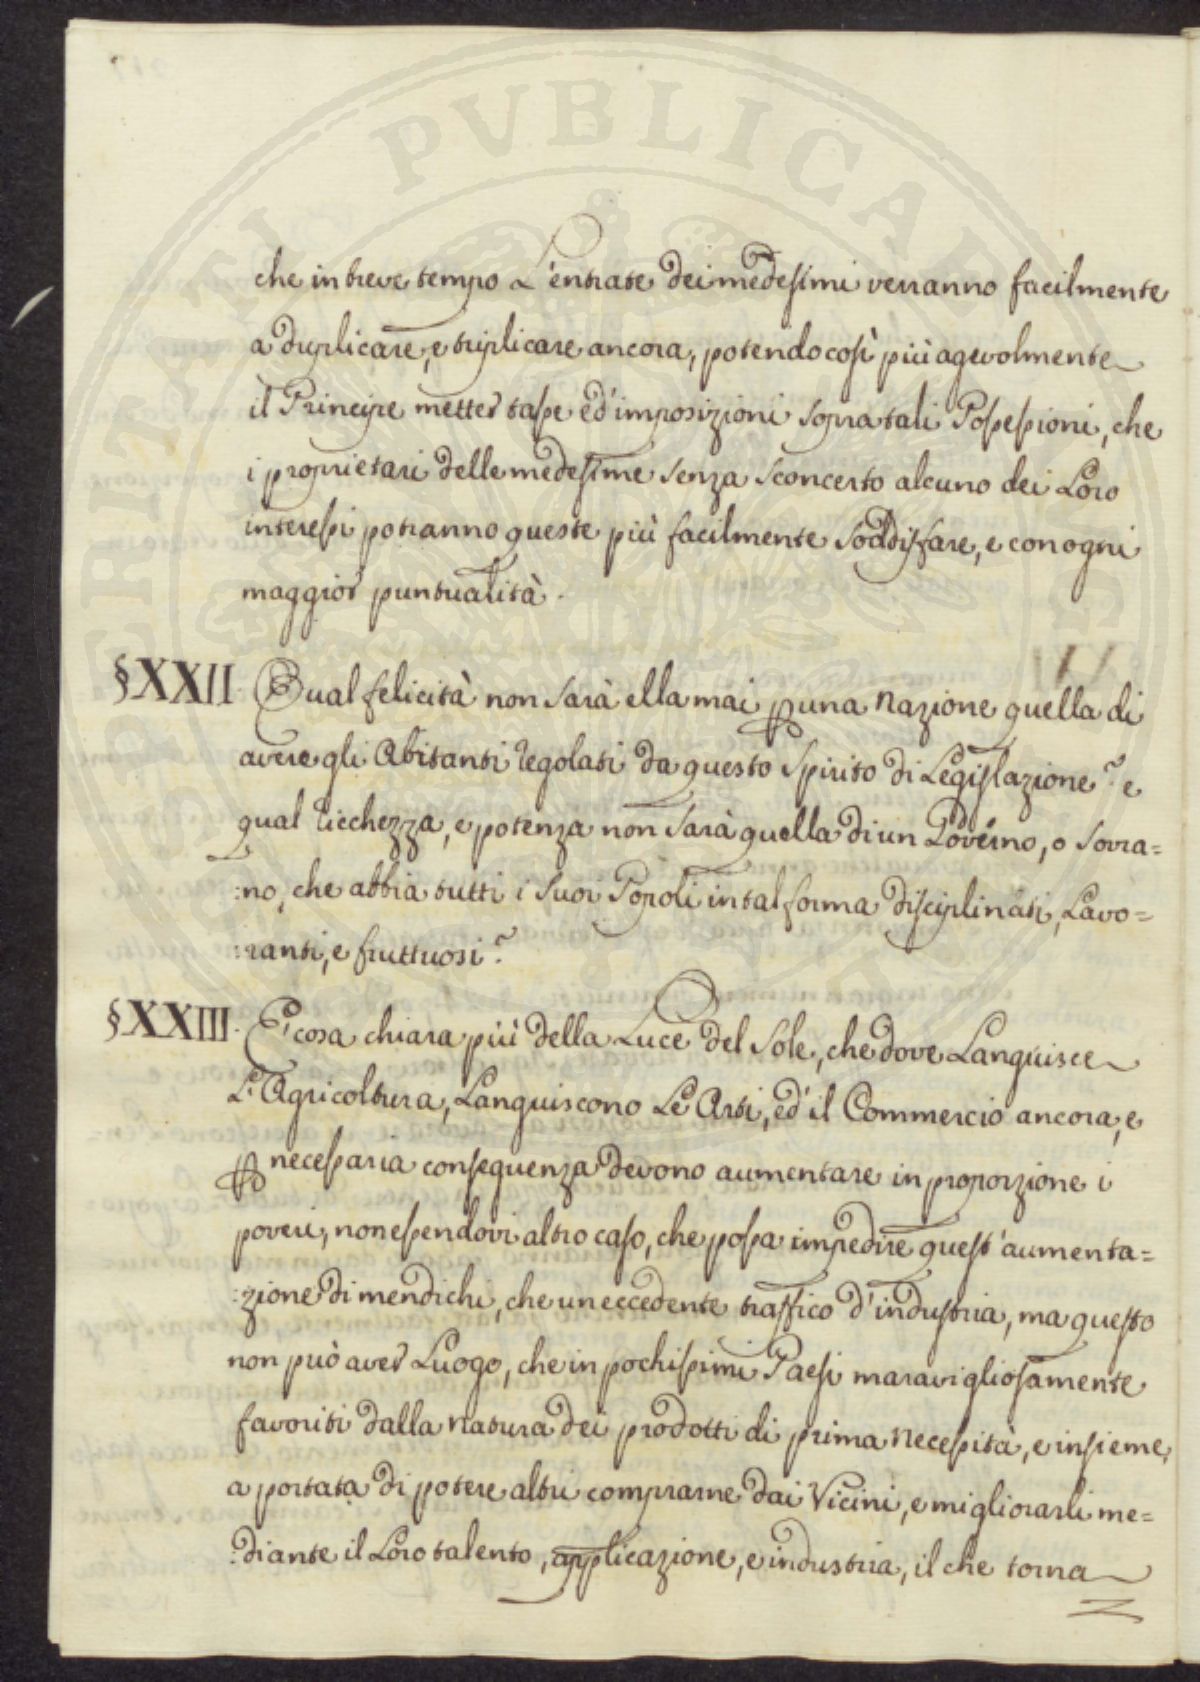 PERITATI PVBLICAE
che in breve tempo L'entrate dei medesimi verranno facilmente
a duplicare, e triplicare ancora, potendo così più agevolmente
il Principe metter tasse ed' imposizioni sopra tali Possessioni, che
i proprietari delle medesime senza sconcerto alcuno dei Loro
interessi potranno queste più facilmente soddisfare, e con ogni
maggior puntualità.
§XXII Qual felicità non sarà ella mai ꝑ una nazione quella di
avere gli Abitanti regolati da questo spirito di Legislazione? e
qual ricchezza, e potenza non sarà quella di un Governo, o sovra=
:no, che abbia tutti i suoi Popoli in tal forma disciplinati, Lavo=
:ranti, e fruttuosi?
§XXIII. E' cosa chiara più della Luce del Sole, che dove Languisce
L'Agricoltura, Languiscono Le Arti, ed' il Commercio ancora, e
ꝑ necessaria conseguenza devono aumentare in proporzione i
poveri, non essendovi altro caso, che possa impedire quest' aumenta=
:zione di mendichi, che un eccedente traffico d'industria, ma questo
non può aver Luogo, che in pochissimi Paesi maravigliosamente
favoriti dalla natura dei prodotti di prima necessità, e insieme
a portata di potere altri comprarne dai Vicini, e migliorarli me=
:diante il Loro talento, applicazione, e industria, il che torna